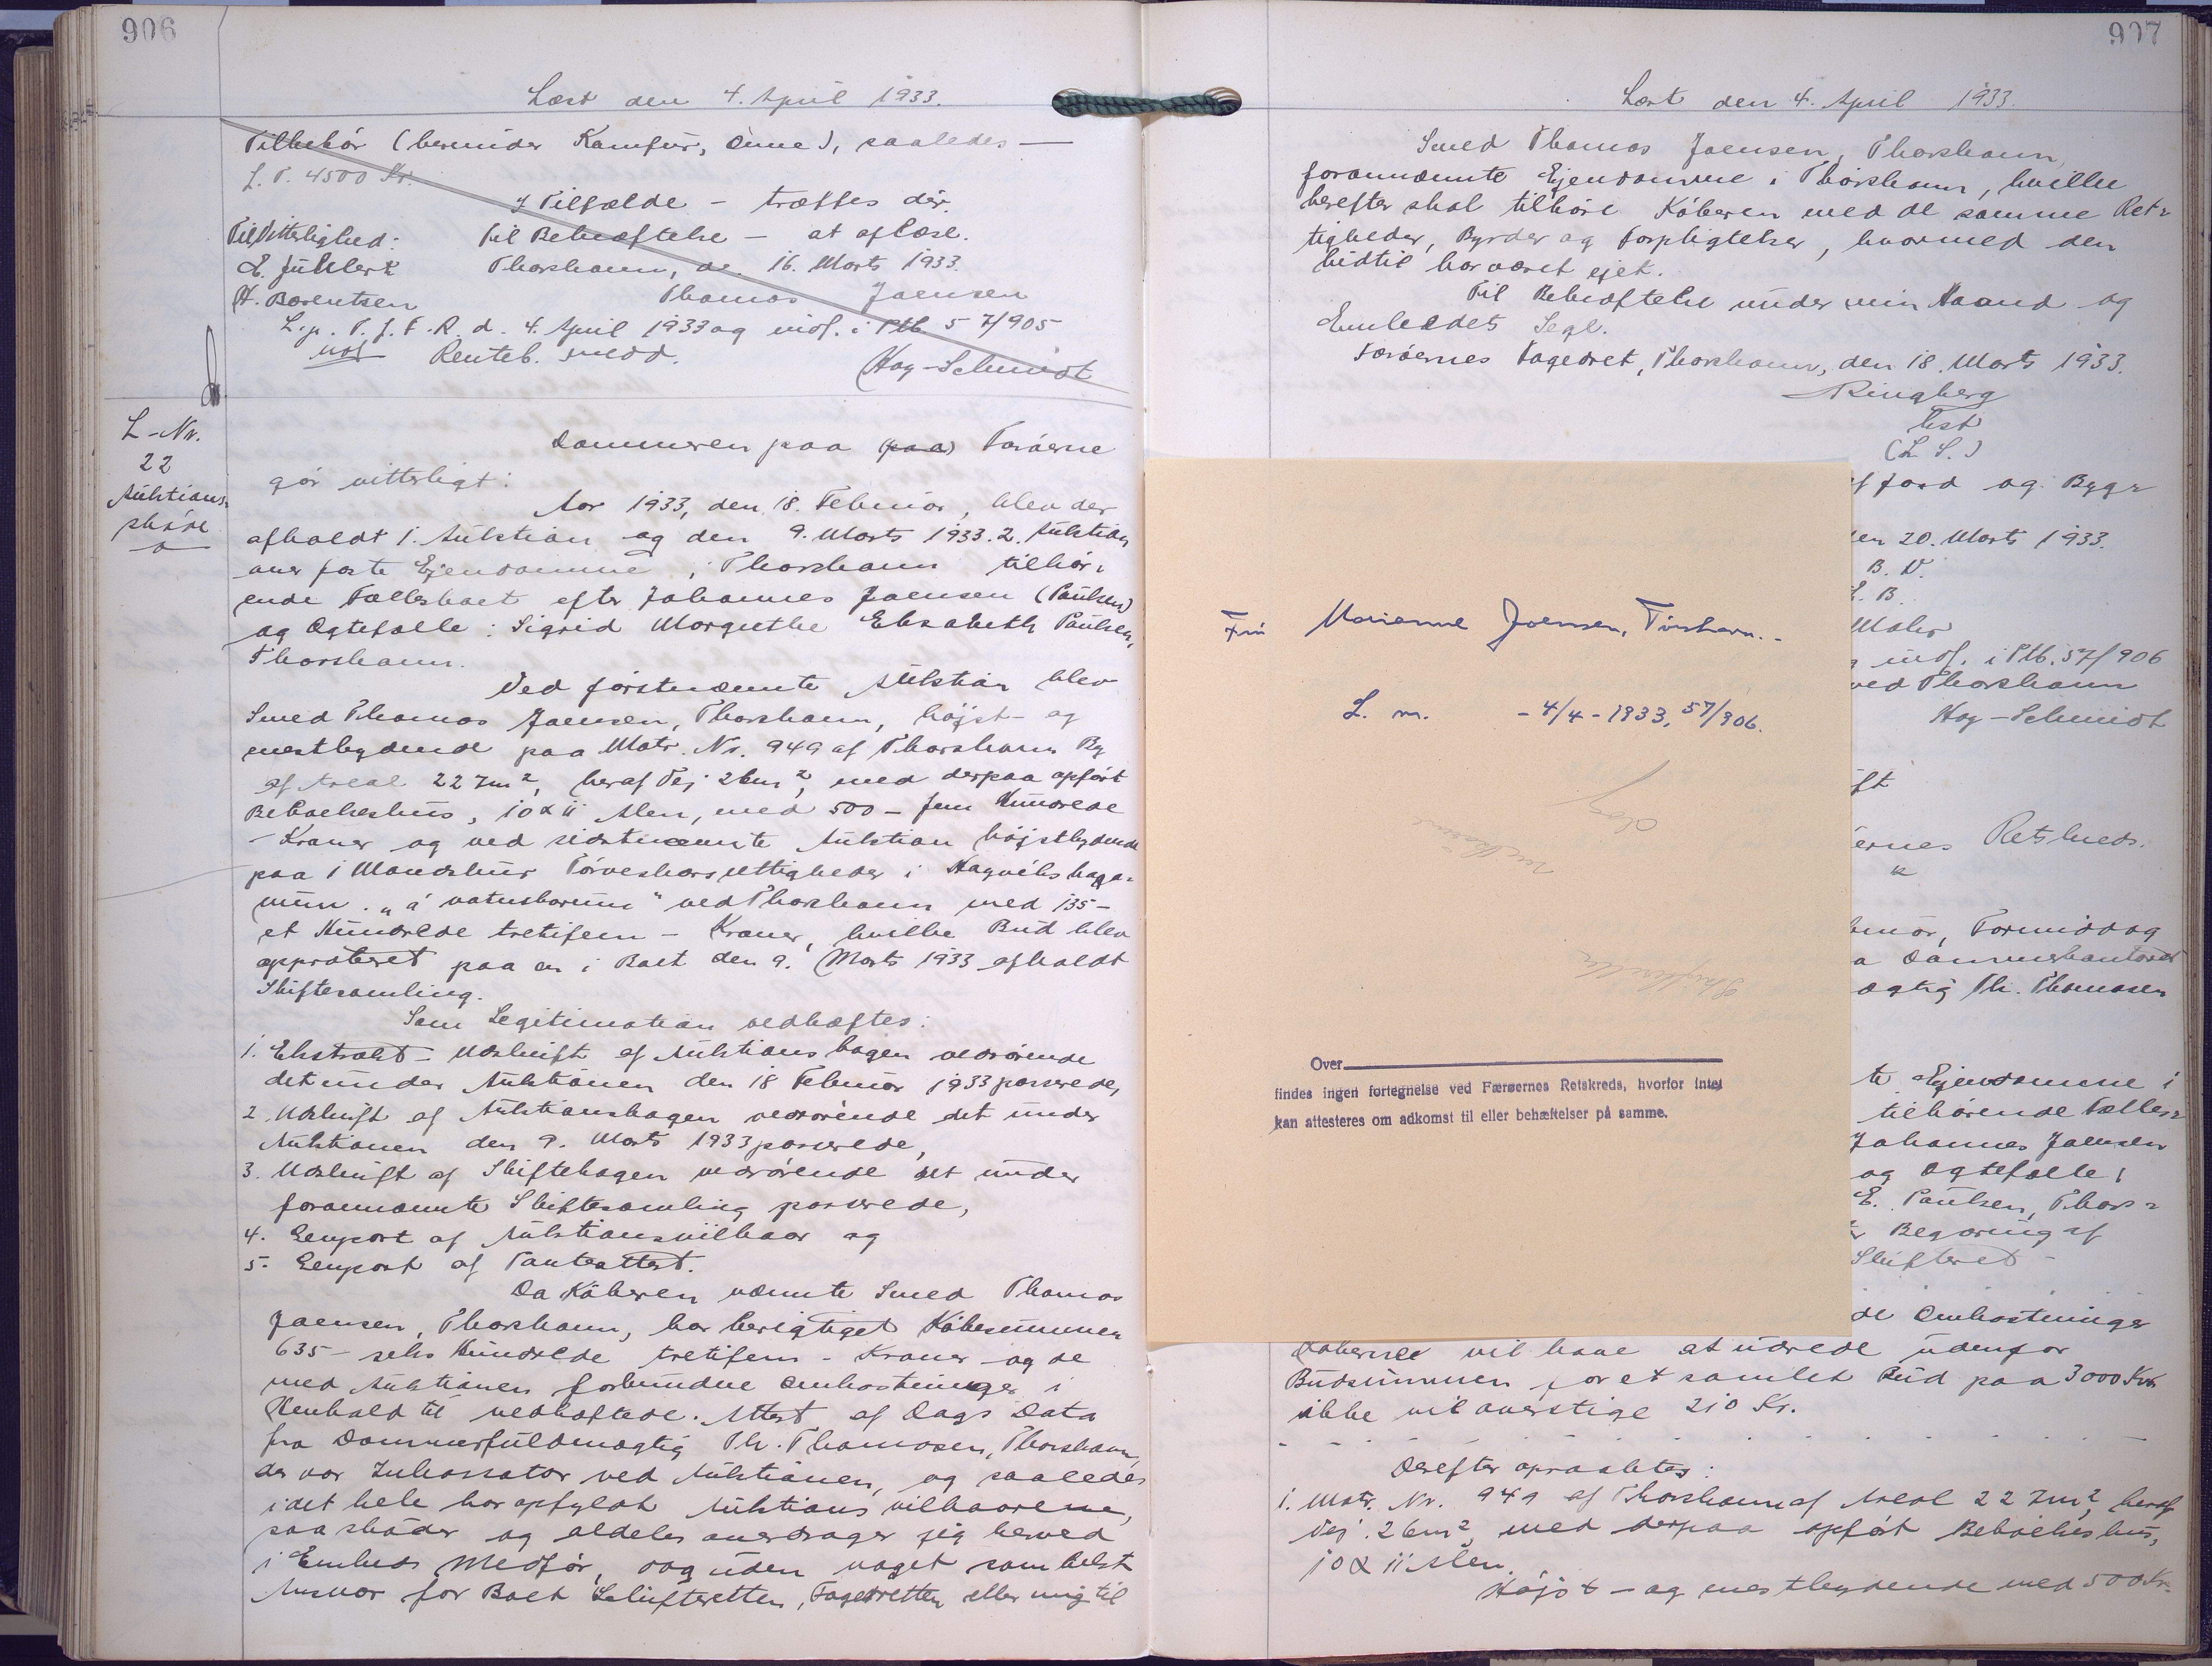 906
Læst den 4. April 1933.
Tilbehör (herunder Komfur, Ovne), saaledes —
L. T. 4500 Kr.
I Tilfælde — træffes dér.
Til Vitterlighed: Til Bekræftelse — at aflæse.
Thorshavn, d. 16. Marts 1933.
H. Berentsen Thomas Joensen
L. p. T. f. F. R. d. 4. April 1933 og indf. i Ptb 57/905
Renteb. medd.
Høg-Schmidt
L-Nr.
22
Auktions-
skøde
Dommeren paa (paa) Færöerne
gör vitterligt:
Aar 1933, den 18. Februar, blev der
afholdt 1. Auktion og den 9. Marts 1933. 2. Auktion
over faste Ejendomme i Thorshavn tilhör-
ende Fællesboet efter Johannes Joensen (Paulsen)
og Ægtefælle: Sigrid Margrethe Elisabeth Paulsen,
Thorshavn.
Ved förstnævnte Auktion blev
Smed Thomas Joensen, Thorshavn, höjst- og
mestbydende paa Matr. Nr. 949 af Thorshavn By
af Areal 227m², heraf Vej 26m², med derpaa opfört
Beboelseshus, 10 x 11 Alen, med 500 — fem Hundrede
— Kroner og ved sidstnævnte Auktion höjstbydende
paa 1 Mandshus Törveskærsrettigheder i Hagviks haga-
num. "á vatnshorum" ved Thorshavn med 135 —
et Hundrede tretifem — Kroner, hvilke Bud blev
approberet paa en i Boet den 9. Marts 1933 afholdt
Skiftesamling.
Som Legitimation vedhæftes:
1. Ekstrakt-Udskrift af Auktionsbogen vedrörende
det under Auktionen den 18 Februar 1933 passerede,
2. Udskrift af Auktionsbogen vedrörende det under
Auktionen den 9. Marts 1933 passerede,
3. Udskrift af Skiftebogen vedrörende det under
forannævnte Skiftesamling passerede,
4. Genpart af Auktionsvilkaar og
5. Genpart af Panteattest.
Da Köberen nævnte Smed Thomas
Joensen, Thorshavn, har berigtiget Köbesummen
635 — seks Hundrede tretifem — Kroner og de
med Auktionen forbundne Omkostninger i
Henhold til vedhæftede Attest af Dags Dato
fra Dommerfuldmægtig Th. Thomasen, Thorshavn,
der var Inkassator ved Auktionen, og saaledes
i det hele har opfyldt Auktionsvilkaarene,
saa sköder og aldeles overdrager jeg herved
i Embeds Medför, dog uden noget som helst
Ansvar for Boet Skifteretten, Fogedretten eller mig til
907
Læst den 4. April 1933.
Smed Thomas Joensen, Thorshavn,
forannævnte Ejendomme i Thorshavn, hvilke
herefter skal tilhöre Köberen med de samme Ret-
tigheder, Byrder og Forpligtelser, hvormed den
hidtil har været ejet.
Til Bekræftelse under min Haand og
Embedets Segl.
Færöernes Fogedret, Thorshavn, den 18. Marts 1933.
Ringberg
kst
(L. S.)
af Jord og Byg-
den 20. Marts 1933.
B. V.
E. B.
Mohr
indf. i Ptb. 57/906
ved Thorshavn
Høg-Schmidt
ernes Retskreds.
Februar, Formiddag
Dommerkontoret
ægtig Th. Thomasen
Ejendomme i
tilhörende Fælles-
Johannes Joensen
og Ægtefælle,
E. Paulsen, Thors-
Begæring af
Skifteret —
de Omkostninger
Köberne vil have at udrede udenfor
Budsummen for et samlet Bud paa 3000 Kr.
ikke vil overstige 210 Kr.
Derefter opraabtes:
1. Matr. Nr. 949 af Thorshavn af Areal 227m², heraf
Vej 26m², med derpaa opfört Beboelseshus,
10 x 11 Alen.
Höjst- og mestbydende med 500 Kr.
Frú Marianne Joensen, Tórshavn.-
L. nr. - 4/4 - 1933, 57/906.
Over
findes ingen fortegnelse ved Færøernes Retskreds, hvorfor intet
kan attesteres om adkomst til eller behæftelser på samme.